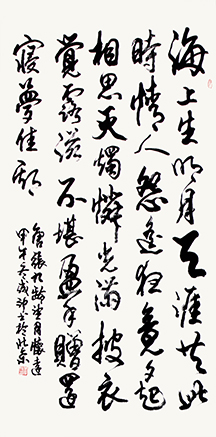 海上生明月天涯共此
時情人怨遙夜竟夕起
相思灭燭憐光滿披衣
覺露滋不堪盈手贈還
寢夢佳期
唐張九齡望月懷遠
甲午
於北京